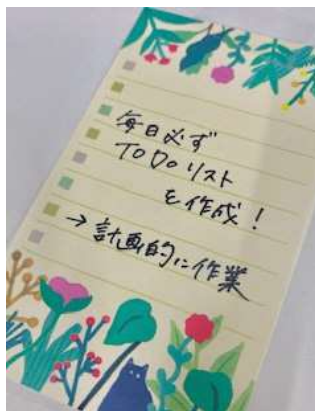 毎日必ず
TODOリスト
を作成!
→計画的に作業